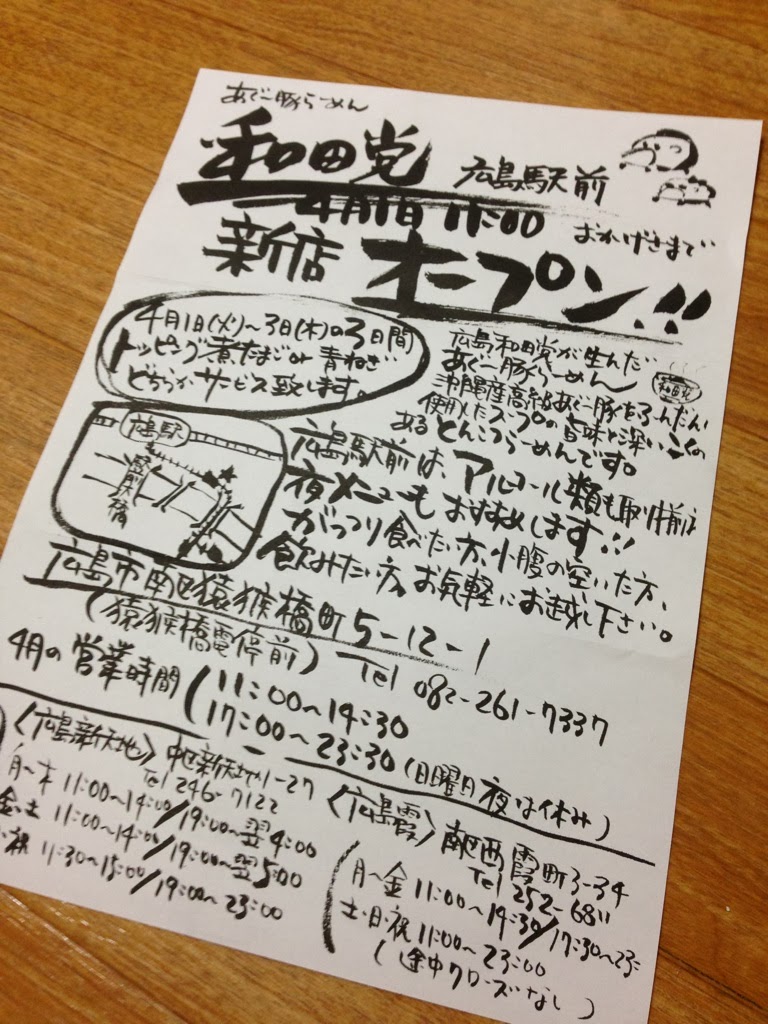 あぐー豚らーめん
和田党 広島駅前
4月1日 11:00
おかげさまで
新店 オープン!!
4月1日(火)~3日(木)の3日間
トッピング煮たまごor青ねぎ
どちらかサービス致します。
広島和田党が生んだ
あぐー豚らーめん
沖縄産高級あぐー豚をふんだんに
使用したスープの旨味と深いコクの
あるとんこつらーめんです。
広島駅
駅前大橋
広島駅前は、アルコール類も取り揃え
夜メニューもおすすめします!!
がっつり食べたい方、小腹の空いた方、
飲みたい方、お気軽にお越し下さい。
広島市南区猿猴橋町5-12-1
(猿猴橋電停前) Tel 082-261-7337
4月の営業時間
11:00~14:30
17:00~23:30 (日曜日夜は休み)
<広島新天地> 中区新天地1-27
Tel 246-7122
月~木 11:00~14:00/19:00~翌4:00
金・土 11:00~14:00/19:00~翌5:00
祝 11:30~15:00/19:00~23:00
<広島霞> 南区西霞町3-34
Tel 252-6811
月~金 11:00~14:30/17:30~23:
土・日・祝 11:00~23:00
(途中クローズなし)